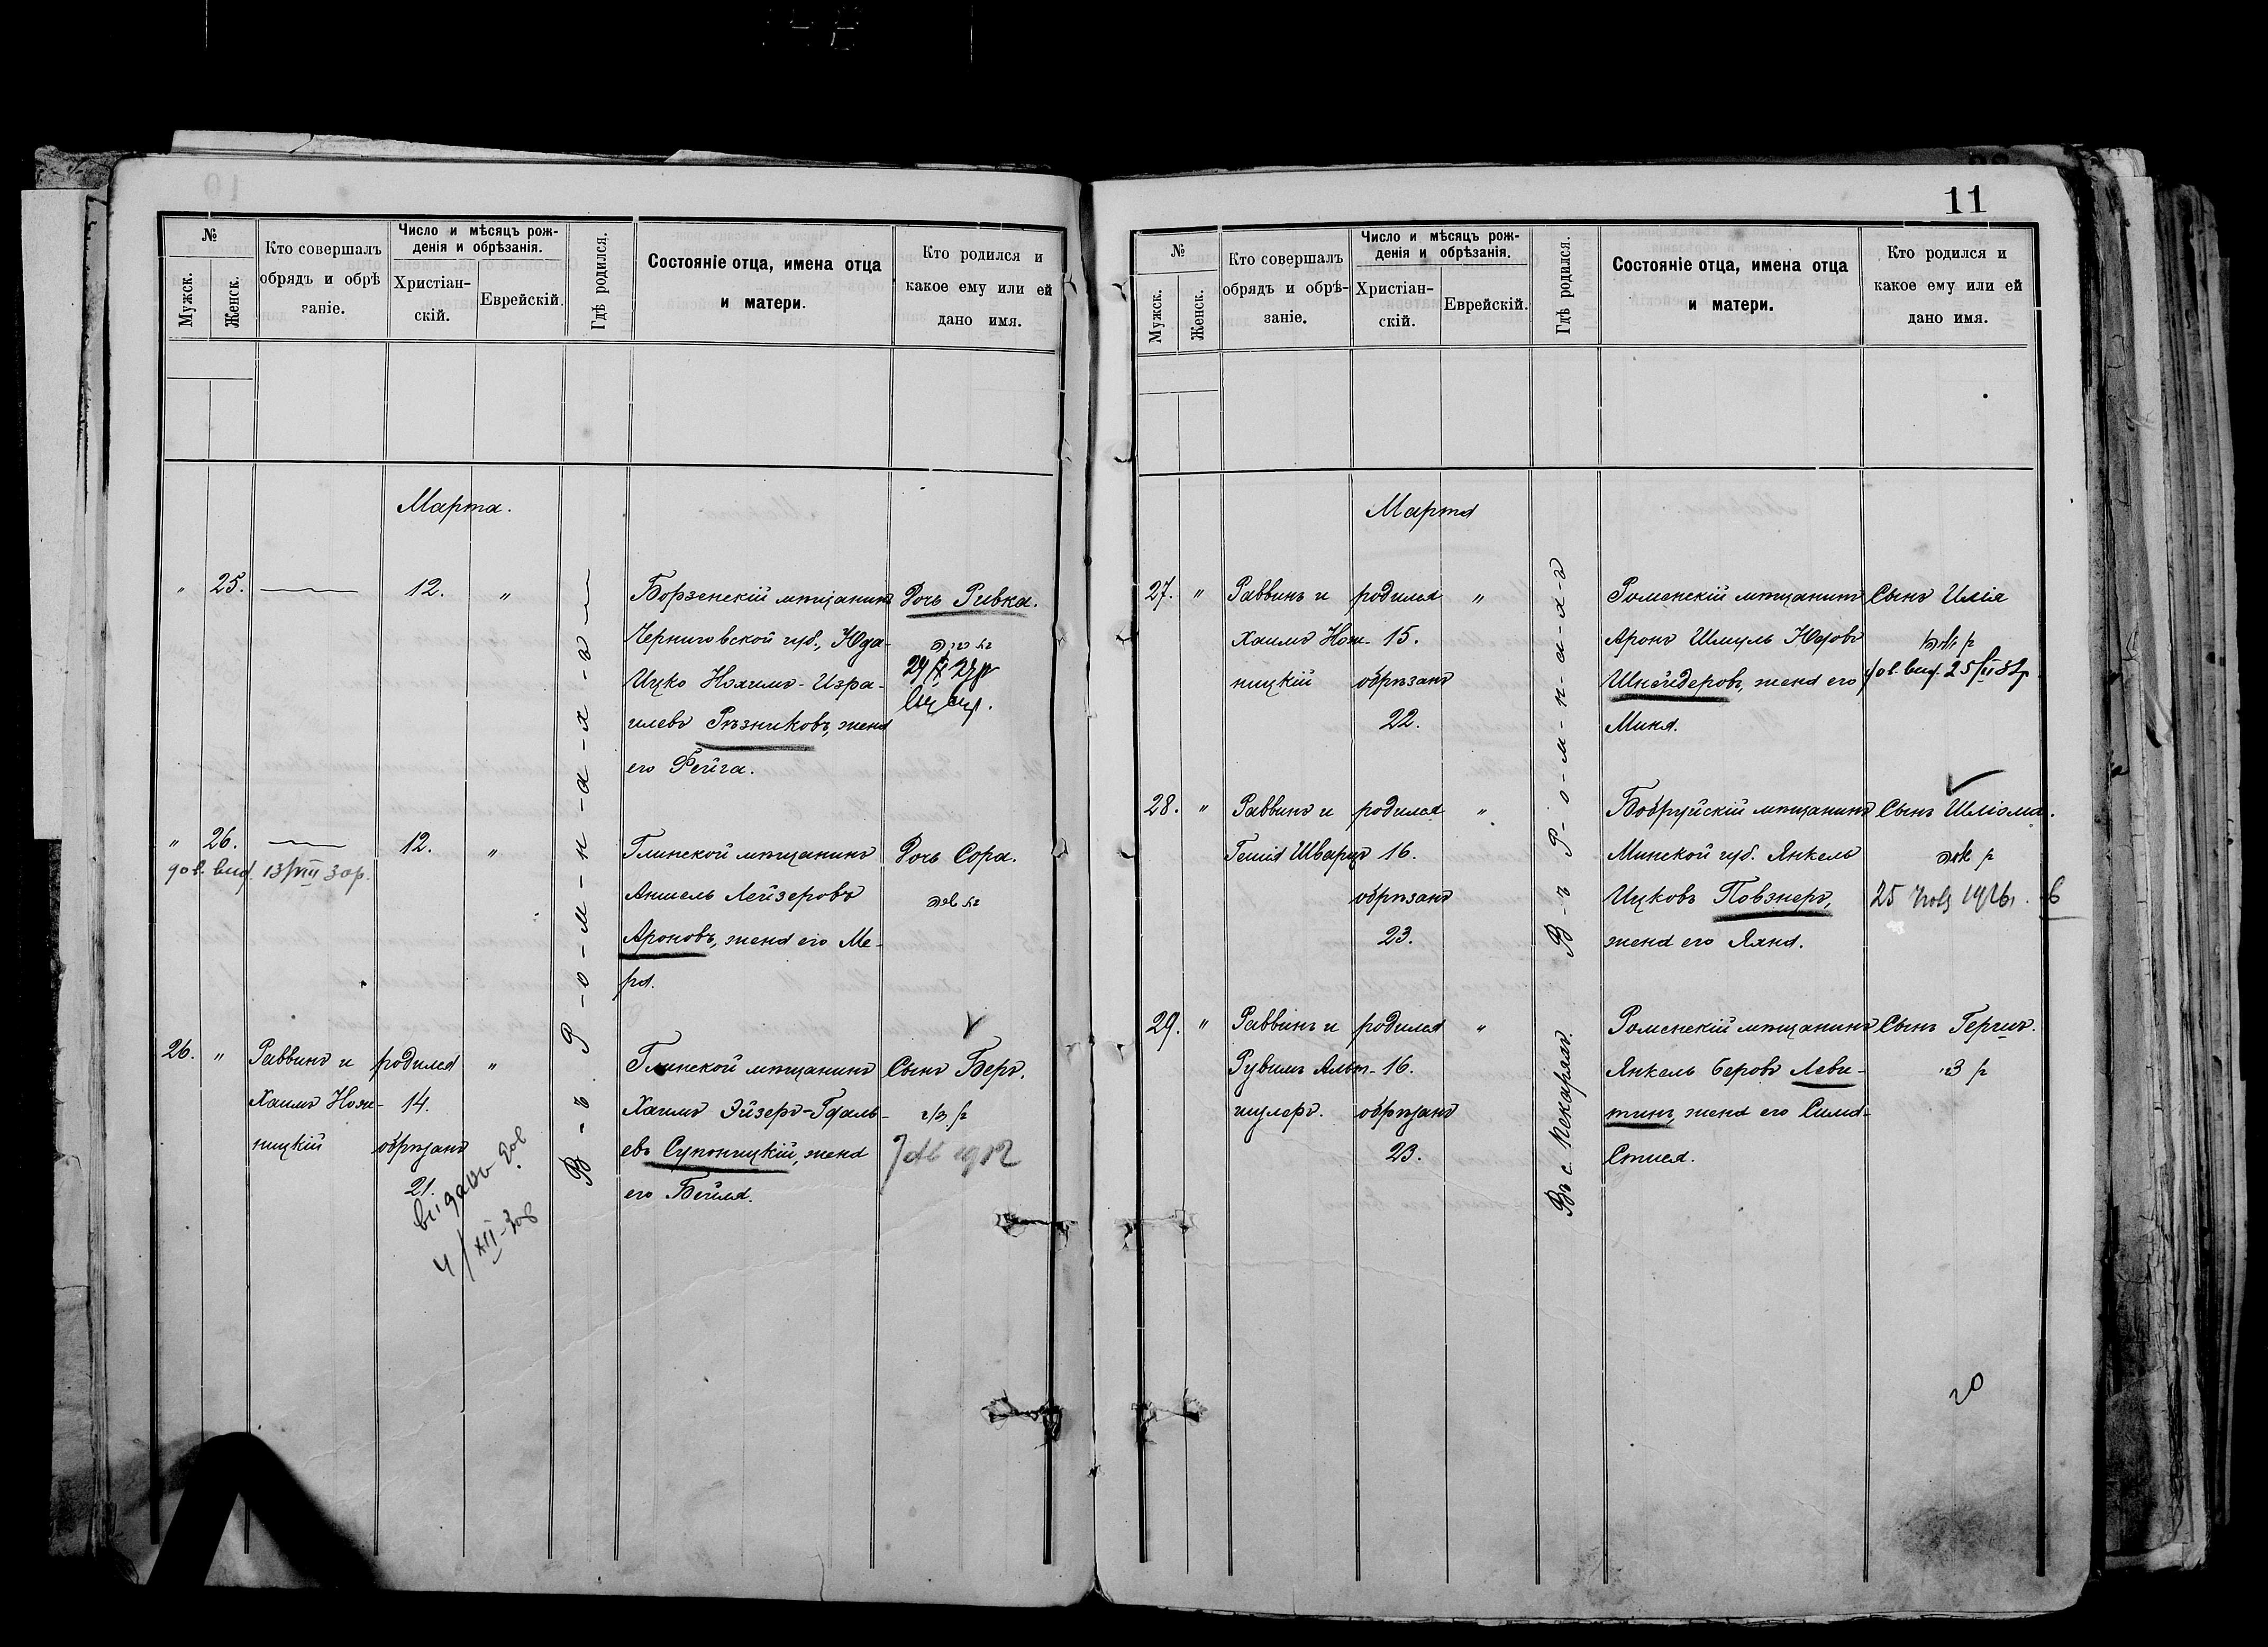 №
Мужск.
Женск.
Кто совершалъ
обрядъ и обрѣ
заніе.
Число и мѣсяцъ рож-
денія и обрѣзанія.
Христіан-
скій.
Еврейскій.
Гдѣ родился.
Состояніе отца, имена отца
и матери.
Кто родился и
какое ему или ей
дано имя.
Марта.
" 25. 12. "
Борзенскій мѣщанинъ
Черниговской губ., Юда-
Ицко Нохимъ-Изра-
илевъ Рѣзниковъ, жена
его Фейга.
Дочь Ривка.
" 26. 12. "
дов. выд. 13/VIII 30р.
Глинской мѣщанинъ
Аншель Лейзеровъ
Ароновъ, жена его Ме-
ра.
Дочь Сора.
26. " Раввинъ и
Хаимъ Нож-
ницкій
родился
14.
обрѣзанъ
21.
"
видано дов
4/XII-30р
В-ъ Р-о-м-н-а-х-ъ
Глинской мѣщанинъ
Хаимъ Эйзеръ-Гдаль-
евъ Супоницкій, жена
его Бейла.
Сынъ Беръ.
11
№
Мужск.
Женск.
Кто совершалъ
обрядъ и обрѣ-
заніе.
Число и мѣсяцъ рож-
денія и обрѣзанія.
Христіан-
скій.
Еврейскій.
Гдѣ родился.
Состояніе отца, имена отца
и матери.
Кто родился и
какое ему или ей
дано имя.
Марта
27. " Раввинъ и
Хаимъ Нож-
ницкій
родился
15.
обрѣзанъ
22.
"
Роменскій мѣщанинъ
Аронъ Шмуль Юдовъ
Шнейдеровъ, жена его
Мина.
Сынъ Илія
дов. выд. 25/
28. " Раввинъ и
Шварцъ
родился
16.
обрѣзанъ
23.
"
В-ъ Р-о-м-н-а-х-ъ
Бобруйскій мѣщанинъ
Минской губ. Янкель
Ицковъ Повзнеръ,
жена его Хана.
Сынъ Шліома.
29. " Раввинъ и
Рувимъ Альт-
шулеръ.
родился
16.
обрѣзанъ
23.
"
Въ с. Пекаряхъ.
Роменскій мѣщанинъ
Янкель Беровъ Леви-
тинъ, жена его Сима-
Стися.
Сынъ Гершъ.